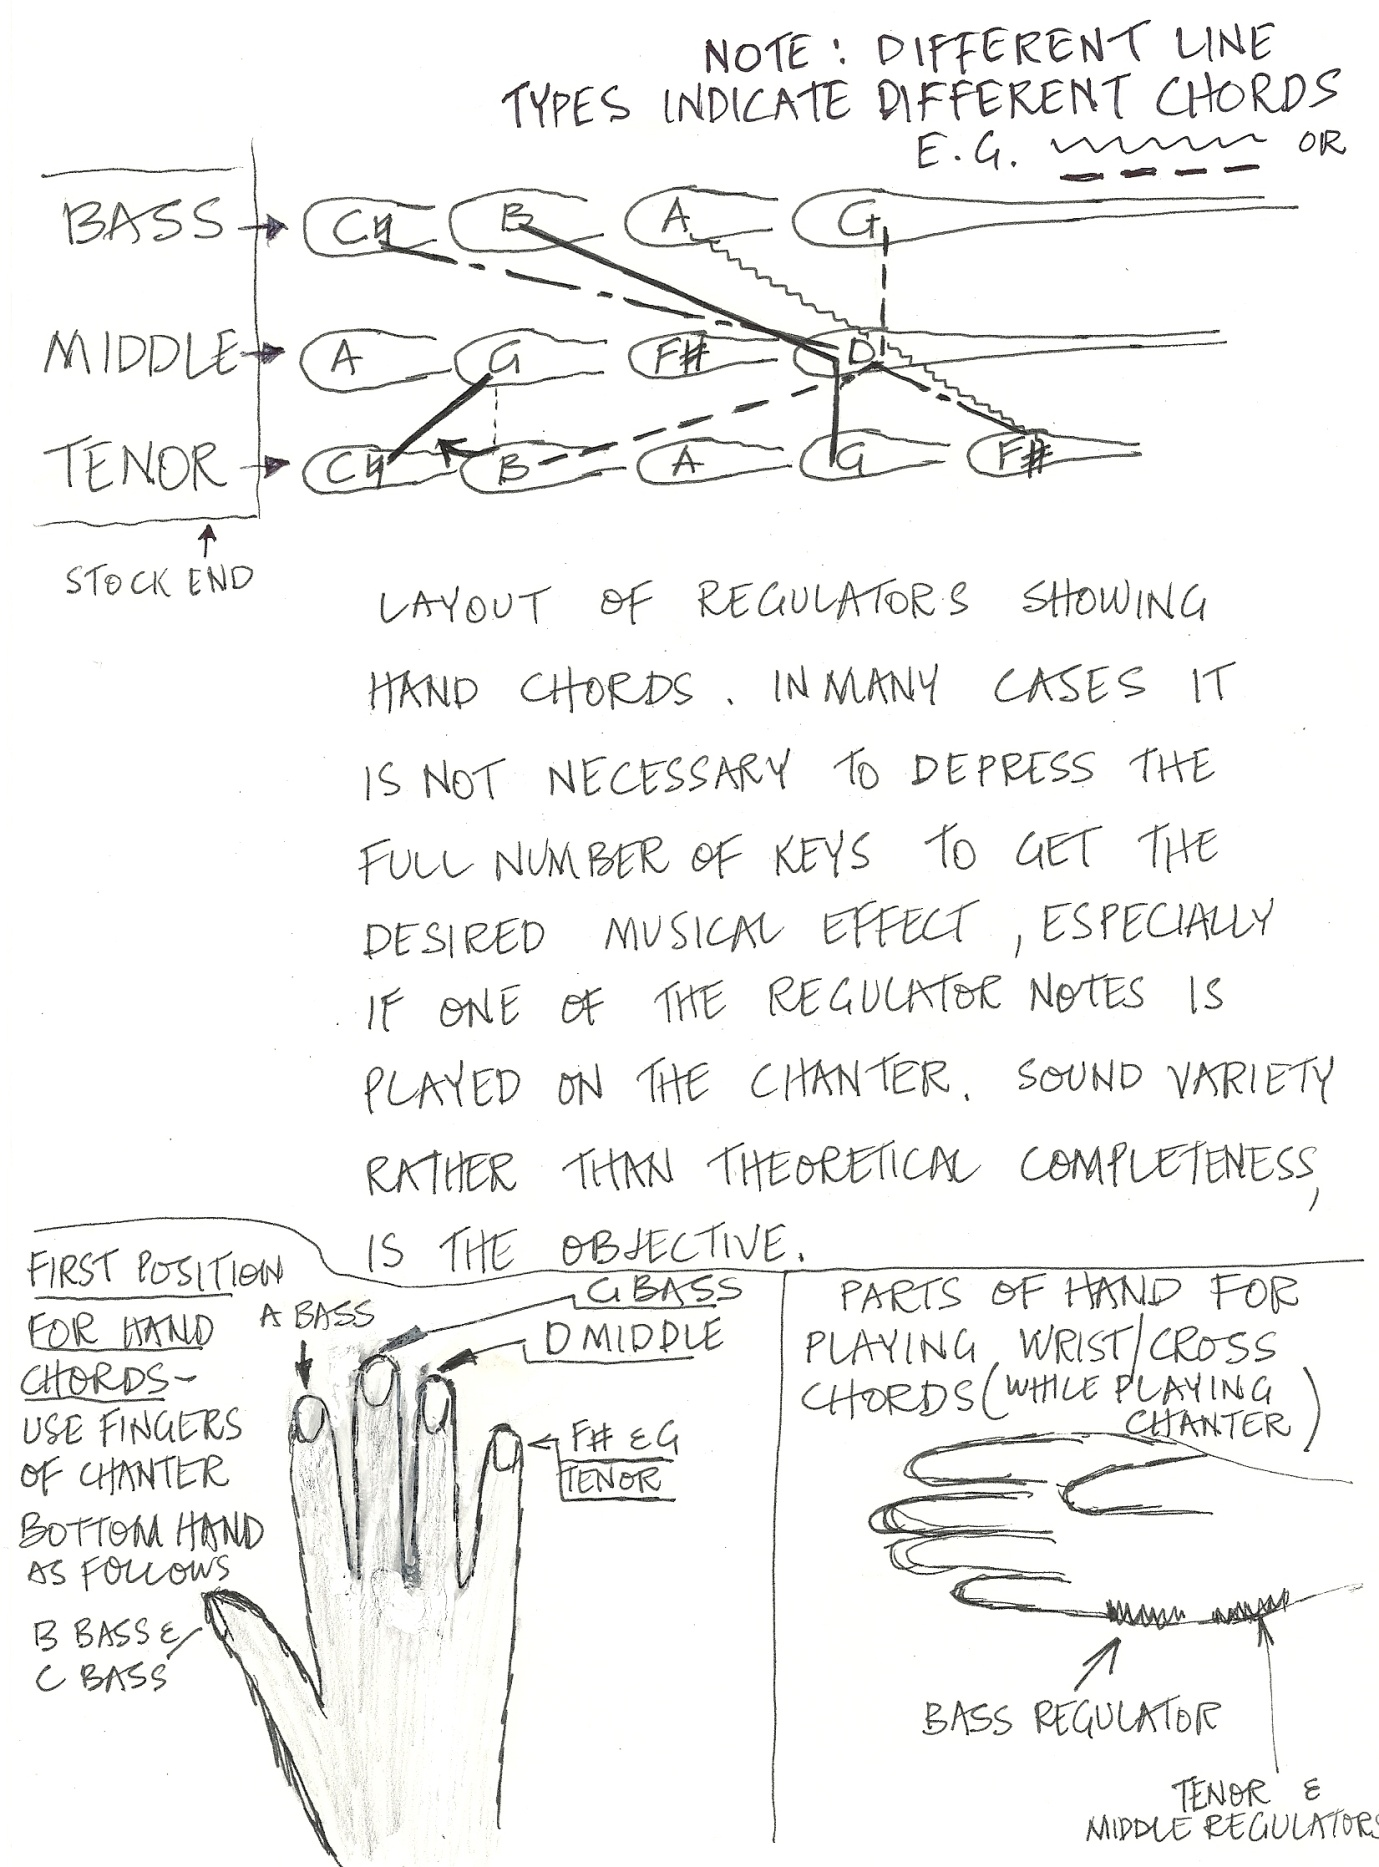 NOTE: DIFFERENT LINE
TYPES INDICATE DIFFERENT CHORDS
E.G. OR
BASS C♮ B A G
MIDDLE A G F# D
TENOR C♮ B A G F#
STOCK END
LAYOUT OF REGULATORS SHOWING
HAND CHORDS. IN MANY CASES IT
IS NOT NECESSARY TO DEPRESS THE
FULL NUMBER OF KEYS TO GET THE
DESIRED MUSICAL EFFECT, ESPECIALLY
IF ONE OF THE REGULATOR NOTES IS
PLAYED ON THE CHANTER. SOUND VARIETY
RATHER THAN THEORETICAL COMPLETENESS,
IS THE OBJECTIVE.
FIRST POSITION
FOR HAND
CHORDS-
USE FINGERS
OF CHANTER
BOTTOM HAND
AS FOLLOWS
B BASS &
C BASS
A BASS
G BASS
D MIDDLE
F# & G
TENOR
PARTS OF HAND FOR
PLAYING WRIST/CROSS
CHORDS (WHILE PLAYING
CHANTER)
BASS REGULATOR
TENOR &
MIDDLE REGULATORS